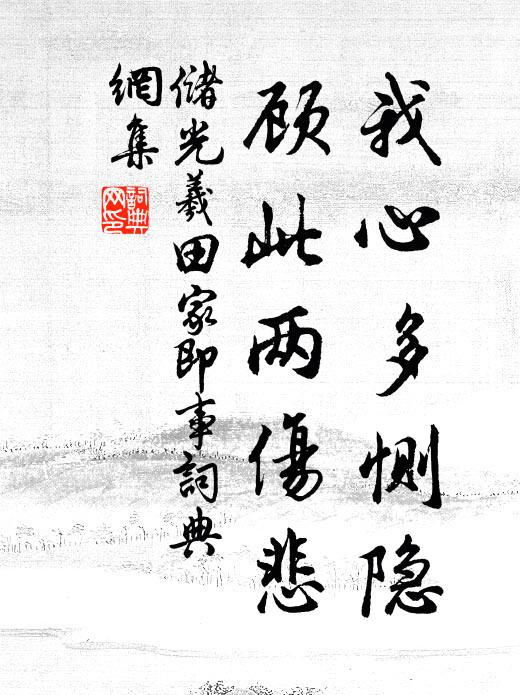 我心多恻隐
顾此两傷悲
儲光羲田家即事詞典
網集
詞典
网印